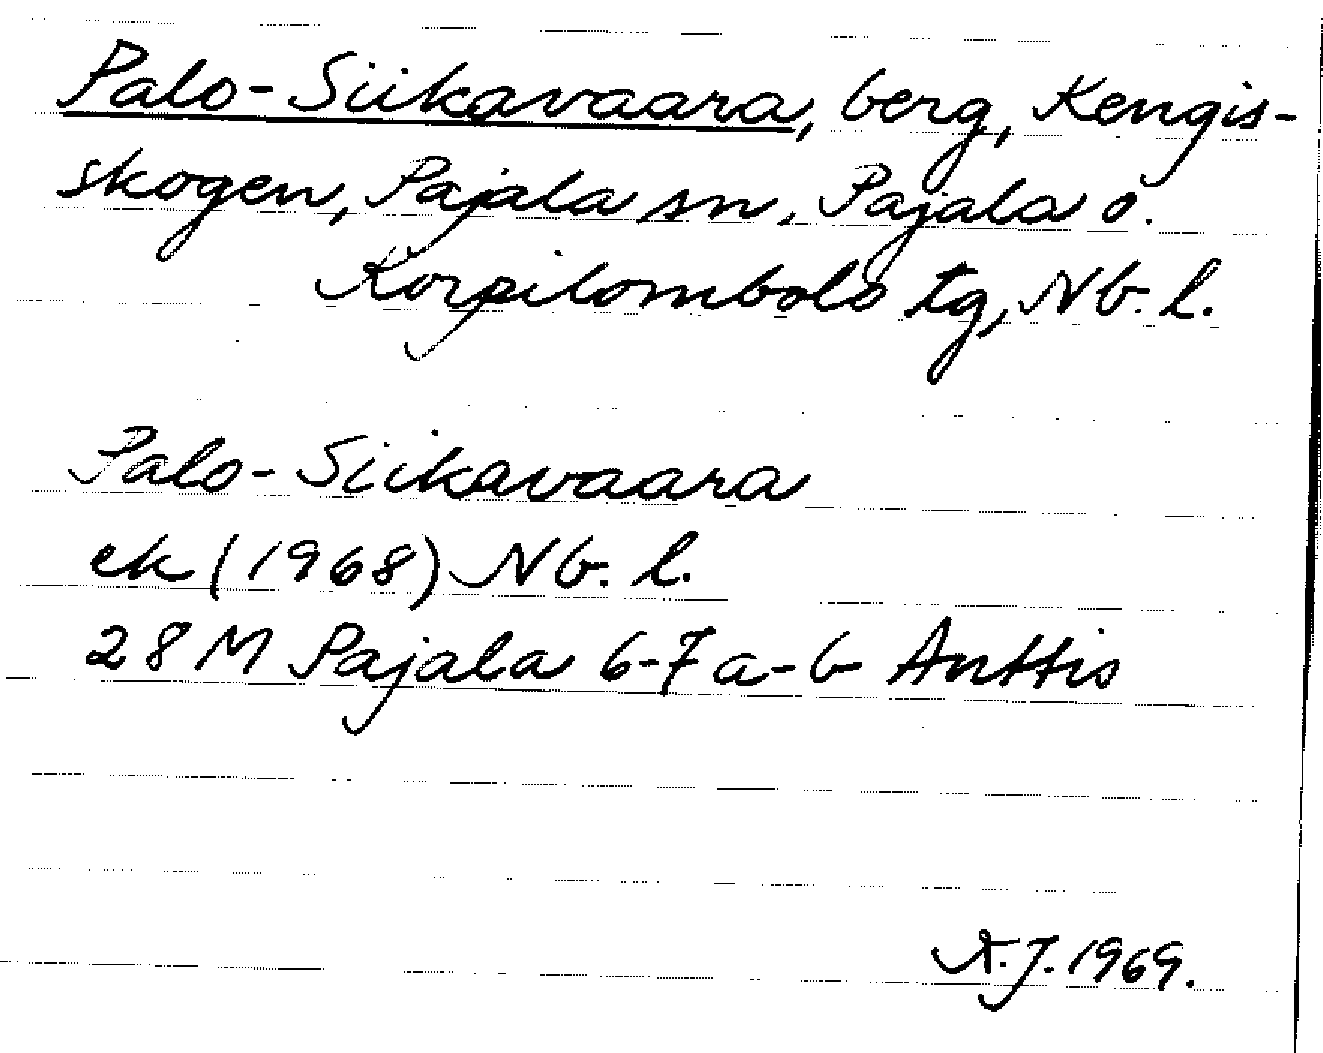 Palo-Siikavaara, berg, Kengis-
skogen, Pajala sn, Pajala o.
Korpilombolo tg, Nb. l.
Palo-Siikavaara
ek (1968) Nb. l.
28 M Pajala 6-7 a-b Anttis
A.J. 1969.